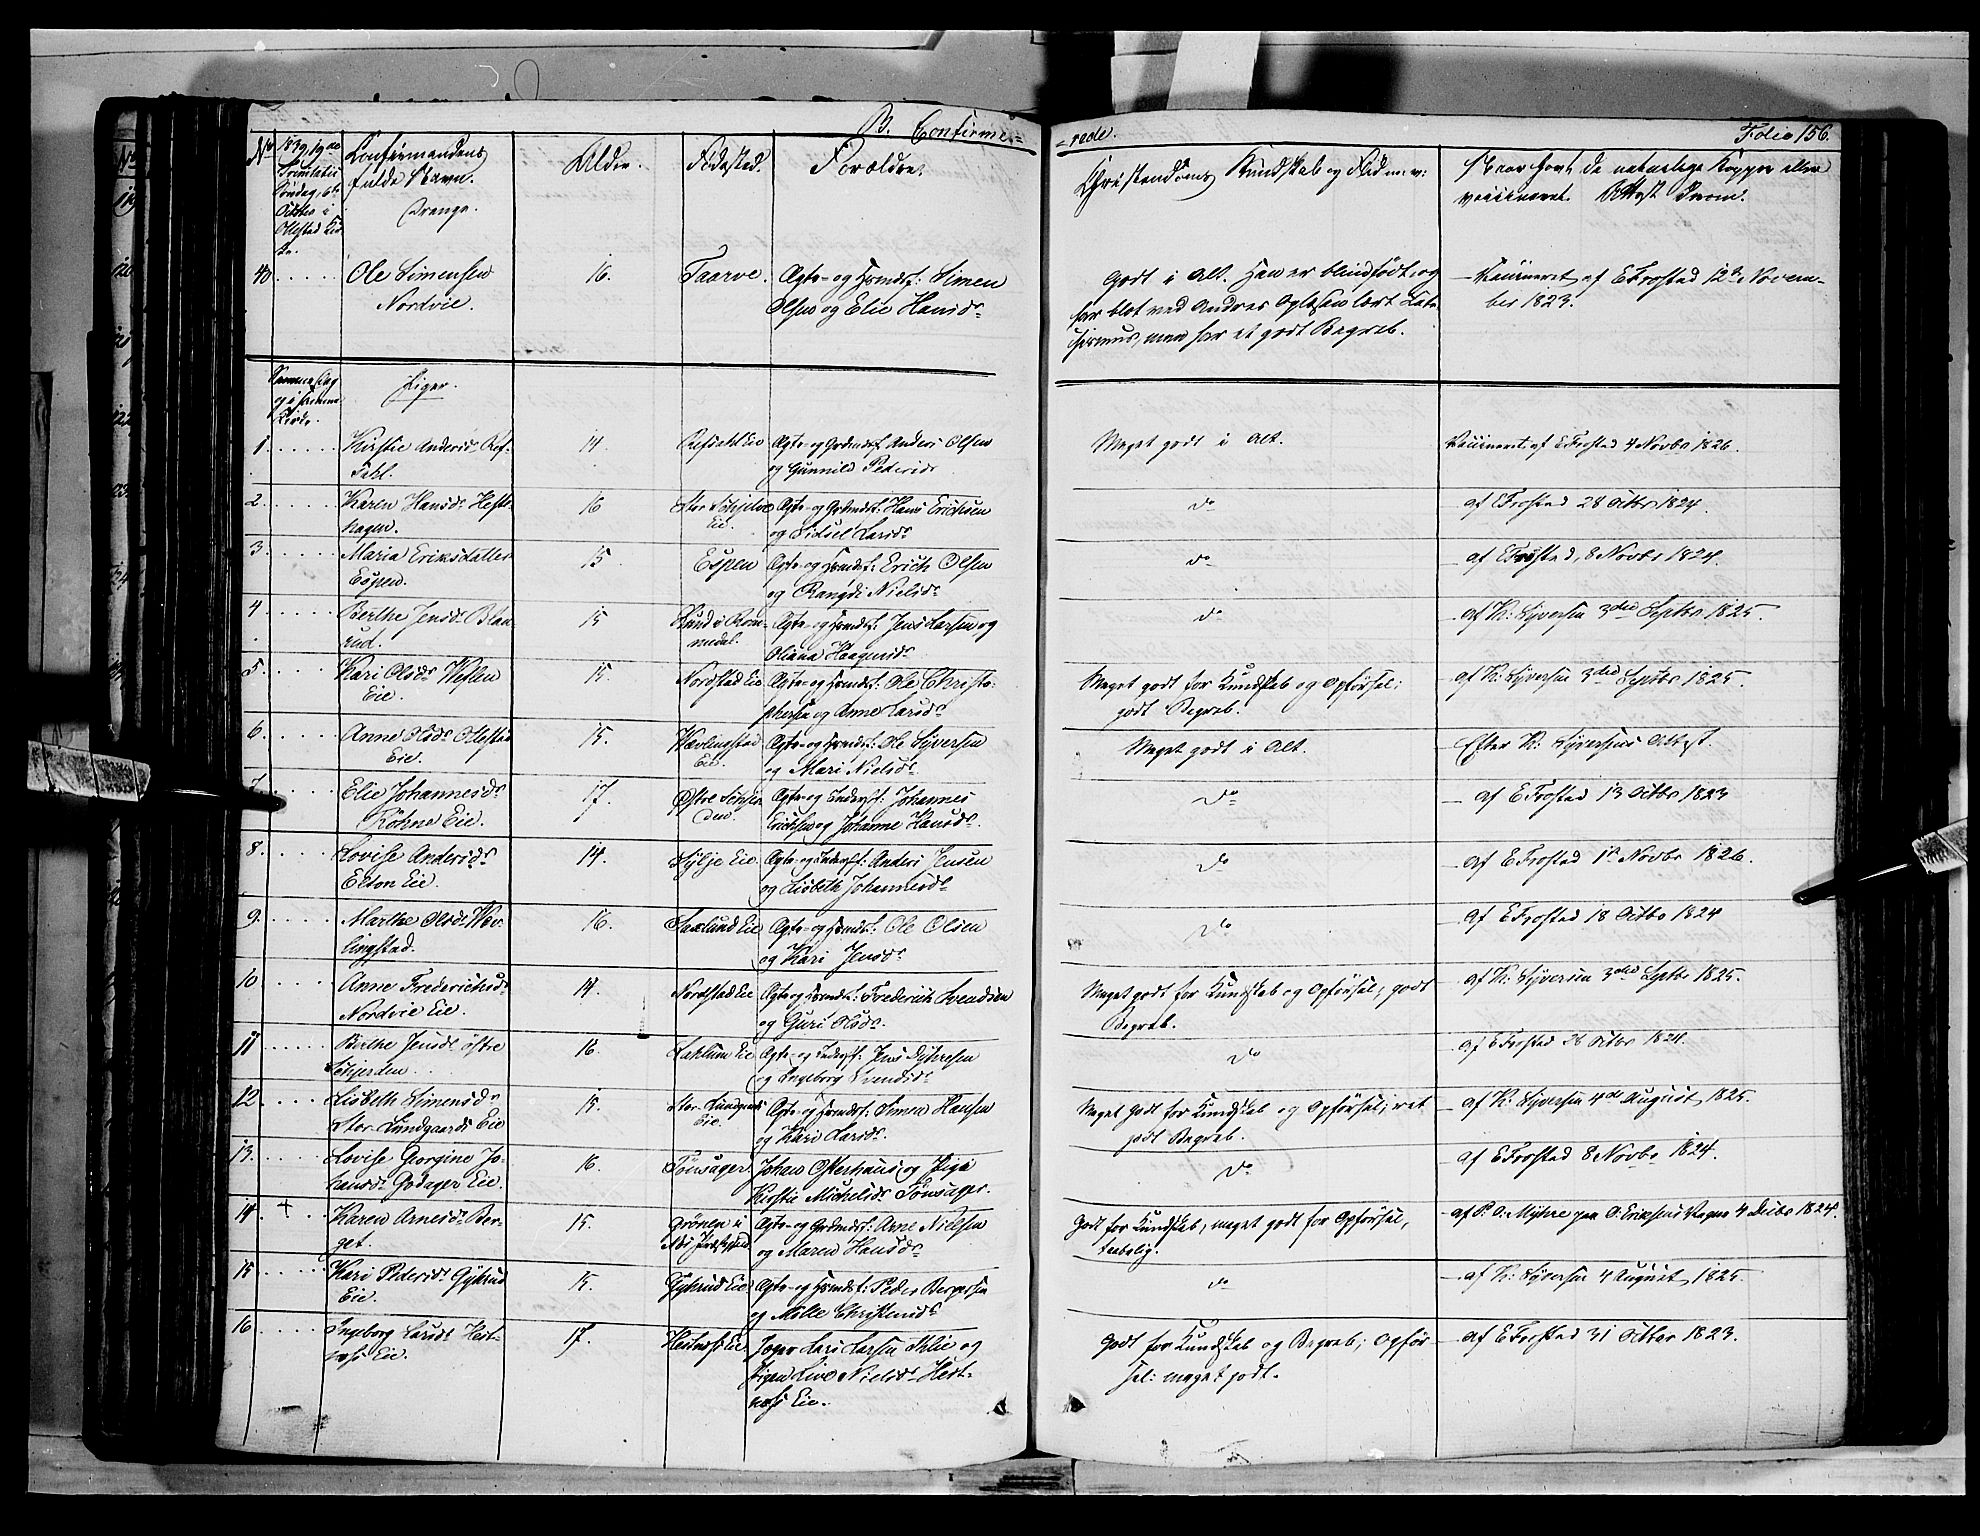 B. Confirme-
-rede.
Folio 156.
No
1839, 19de
Trinitatis
Søndag, 6te
Octbr i
Ottestad Kir-
ke.
Confirmandens
fulde Navn.
Drenge.
Alder.
Fødested.
Forældre.
Christendoms Kundskab og Flid m: v:
Naar havt de naturlige Kopper eller
vaccineret. Attest derom.
40.
Ole Simensen
Nordvie.
16.
Taarve.
Ægte- og Huusmdsf: Simen
Olsen og Elie Hansd.
Godt i Alt. Han er blindfødt, og
har blot ved Andres Oplæsen lært Cate-
chismus, men har et godt Begreb.
Vaccineret af E Frostad 12te Novem-
ber 1823.
Samme Dag
og i samme
Kirke.
Piger.
1.
Kirstie Andersd. Ref-
Sahl.
14.
Refsahl Eie
Ægte- og Grdmdsf. Anders Olsen
og Gunnild Pedersd.
Meget godt i Alt.
Vaccineret af E Frostad 4 Novbr 1826.
2.
Karen Hansd. Hest-
hagen.
16
Stor Schjelve
Eie.
Ægte- og Grdmdsf: Hans Erichsen
og Sidsel Larsd.
do
af E Frostad 28 Octbr 1824.
3.
Maria Eriksdatter
Espen.
15.
Espen
Ægte- og Huusmdsf. Erich Olsen
og Rangdi Nielsd.
do
af E Frostad, 8 Novbr 1824.
4.
Berthe Jensd. Blaa-
rud.
15
Sund i Rom-
medal.
Ægte- og Huusmdsf. Jens Larsen og
Oliana Haagensd.
do
af K: Syversen 3die Septbr 1825.
5.
Kari Olsd. Westen
Eie.
15.
Nordstad Eie
Ægte- og Huusmdsf: Ole Christo-
phersen og Anne Larsd.
Meget godt for Kundskab og Opførsel;
godt Begreb.
af K: Syversen 3die Septbr 1825.
6.
Anne Olsd. Ottestad
Eie.
15.
Wævlingstad
Eie.
Ægte- og Huusmdsf: Ole Syversen
og Mari Nielsd.
Meget godt i Alt.
Efter K: Syversens Attest.
7.
Elie Johannesd.
Röhne Eie.
17.
Østre Schjer-
den.
Ægte- og Inderstf: Johannes
Erichsen og Johanne Hansd.
do
af E Frostad 13 Octbr 1823
8.
Lovise Andersd.
Ekton Eie.
14.
Hylje Eie.
Ægte- og Inderstf: Anders Jensen
og Lisbeth Johannesd.
do
af E Frostad 1st Novbr 1826.
9.
Marthe Olsd. Wæv-
lingstad.
16.
Saxlund Eie
Ægte- og Huusmdsf. Ole Olsen
og Kari Jensd.
do
af E Frostad 18 Octbr 1824
10
Anne Frederichsd.
Nordvie Eie.
14.
Nordstad Eie
Ægte og Huusmdsf: Frederich Svendsen
og Guri Olsd.
Meget godt for Kundskab og Opførsel; godt
Begreb.
af K: Syversen 3die Septbr 1825.
11
Berthe Jensd. östre
Schjerden.
16.
Sahlum Eie
Ægte- og Inderstf: Jens Dyhresen
og Ingeborg Svendsd.
do
af E Frostad 26 Octbr 1824.
12.
Lisbeth Simensd.
Stor-Lundgaards Eie
15.
Stor-Lundgaards
Eie.
Ægte- og Huusmdsf: Simen Hansen
og Kari Larsd.
Meget godt for Kundskab og Opførsel; ret
godt Begreb.
af K: Syversen 4de August 1825.
13.
Lovise Georgine Jo-
hansd. Godager Eie.
16.
Tönsager.
Johan Osterhaus og Pige
Kirstie Michelsd. Tönsager.
do
af E Frostad 8 Novbr 1824.
14.
+
Karen Arnesd. Ber-
get.
15.
Grönen i
Næs Præstegjeld
Ægte- og Grdmdsf: Arne Nielsen
og Maren Hansd.
Godt for Kundskab, meget godt for Opførsel,
taabelig.
af P: O: Myhre paa O: Eriksens Vegne 4 Decbr 1824.
15
Kari Pedersd. Gyhrud
Eie.
15.
Gyhrud Eie
Ægte- og Huusmdsf: Peder Bergersen
og Malie Christensd.
do
af K: Syversen 4 August 1825.
16
Ingeborg Larsd. Hest-
næs Eie.
17.
Hestnæs Eie.
Jæger Lars Larsen Ihlie og
Pigen Live Nielsd. Hest-
næs Eie.
Godt for Kundskab og Begreb; Opfør-
sel: meget godt.
af E Frostad 31 Octbr 1823.